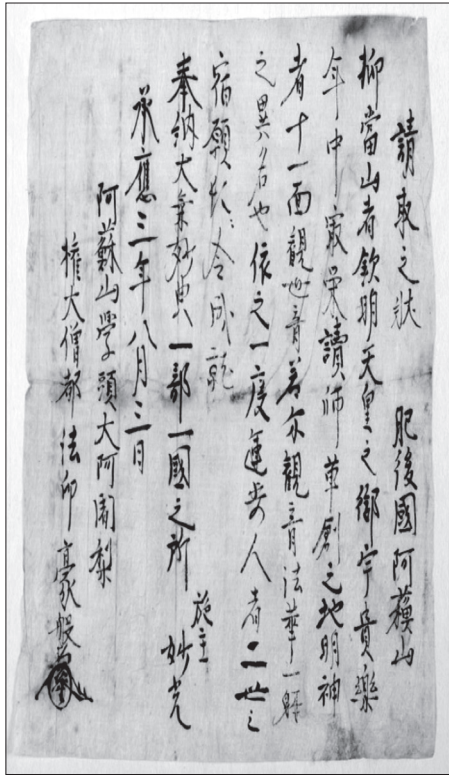 請取之狀 肥後國阿蘓山
抑當山者欽明天皇之御宇貴樂
年中最榮讀師草創之地明神
者十一面觀世音若亦觀音法華一經
之異名也依之一度運步人者二世之
宿願悉令成就
奉納大乘妙典一部一國之所 施主 妙光
承應三年八月三日
阿蘇山學頭大阿闍梨
權大僧都法印豪